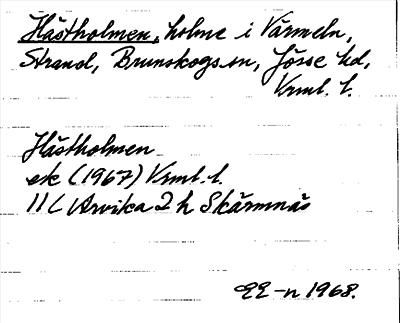 Hästholmen, holme i Värmeln,
Strand, Brunskogs sn, Jösse hd,
Vrml. l.
Hästholmen
ek (1967) Vrml. l.
11 C Arvika 2 h Skärmnäs
-n 1968.